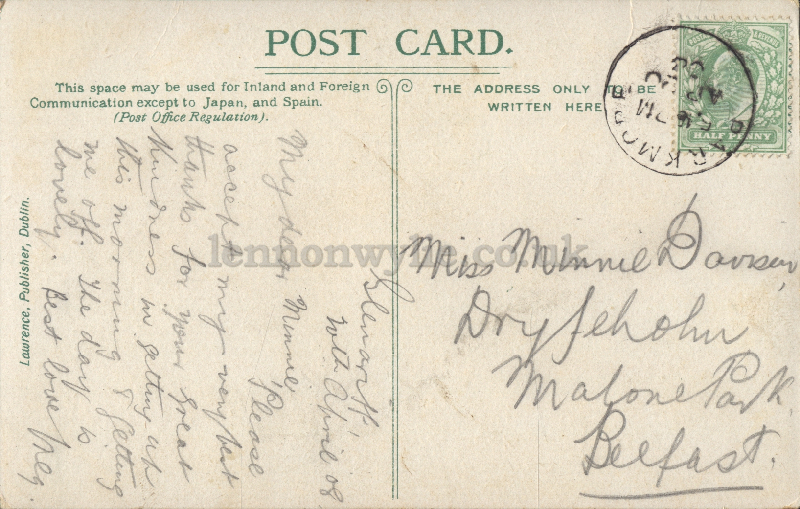 POST CARD.
This space may be used for Inland and Foreign
Communication except to Japan, and Spain.
(Post Office Regulation).
THE ADDRESS ONLY TO BE
WRITTEN HERE
HALF PENNY
PARKMORE
Lawrence, Publisher, Dublin.
lennonwylie.co.uk
Glenariff
April 08
My dear Minnie
Please
accept my very best
thanks for your great
kindness in getting up
this morning & getting
me off. The day is
lovely. Best love Meg.
Miss Minnie Davison
Dryfeholm
Malone Park
Belfast.